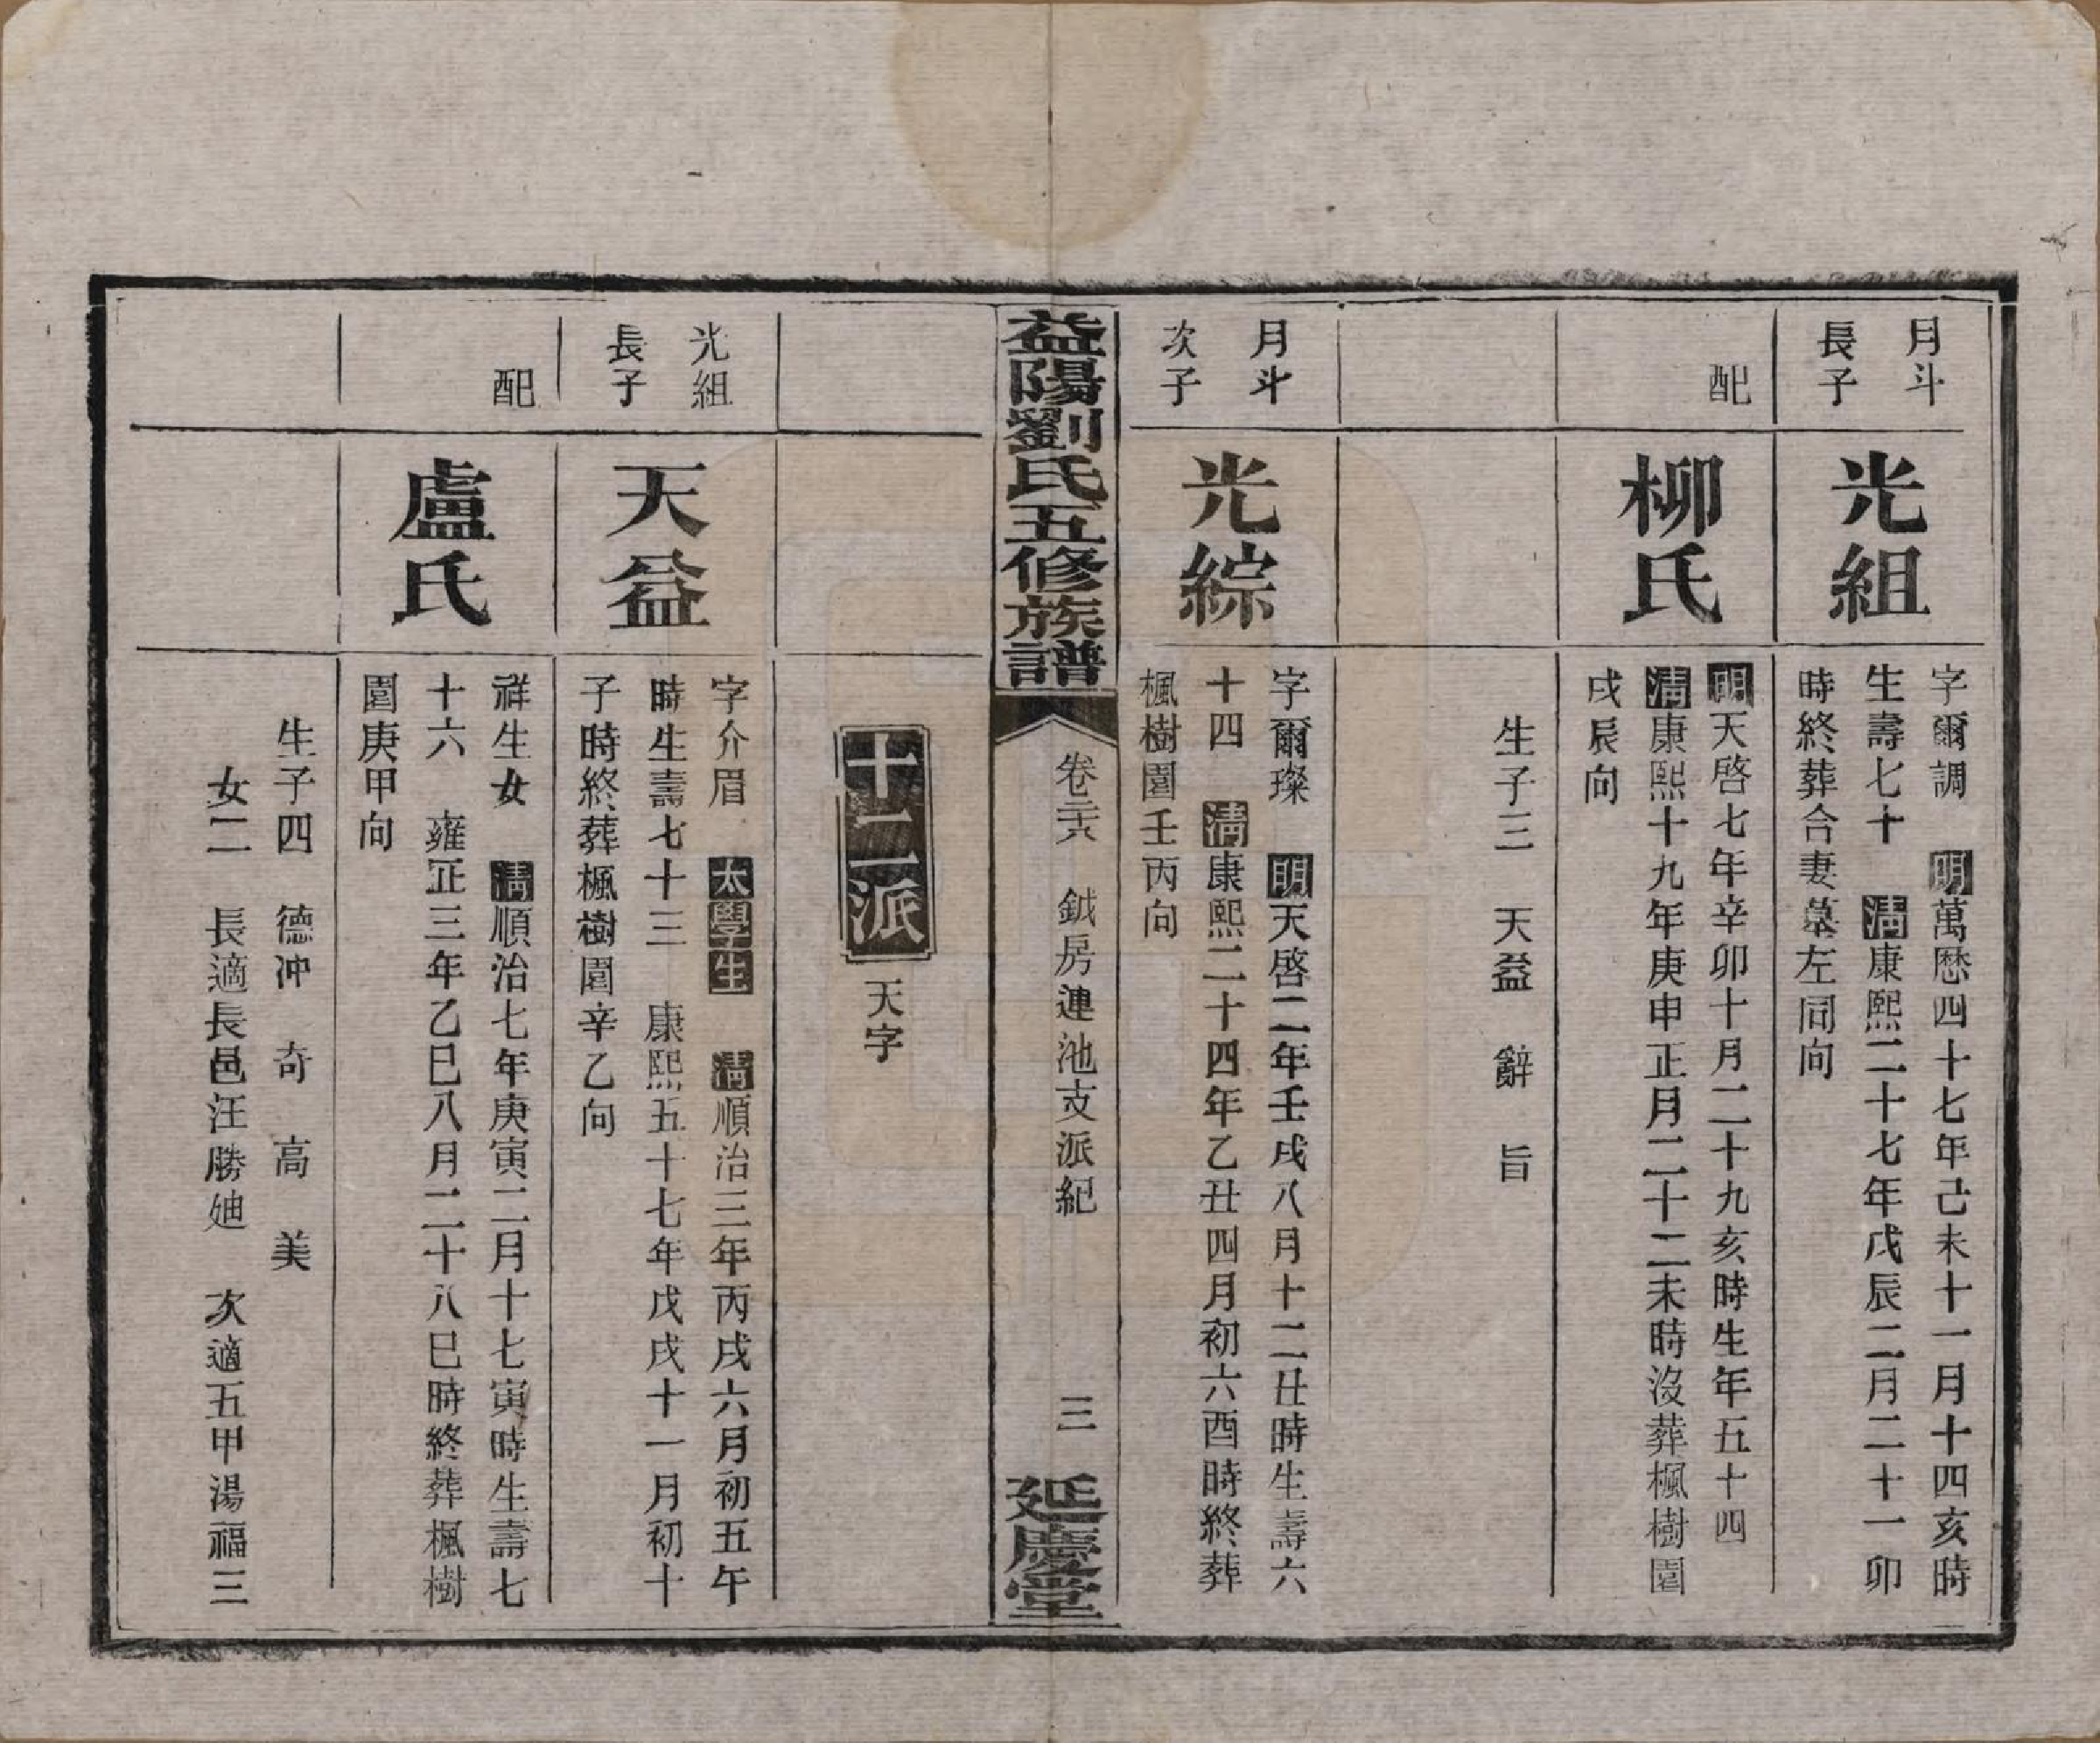 月斗
長子
光組
字爾調　明萬厯四十七年己未十一月十四亥時
生壽七十　清康熙二十七年戊辰二月二十一卯
時終葬合妻墓左同向
配
柳氏
明天啓七年辛卯十月二十九亥時生年五十四
清康熙十九年庚申正月二十二未時沒葬楓樹園
戌辰向
生子三　天益　辭　旨
月斗
次子
光綜
字爾璨　明天啓二年壬戌八月十二丑時生壽六
十四　清康熙二十四年乙丑四月初六酉時終葬
楓樹園壬丙向
益陽劉氏五修族譜
卷二六　鉞房連池支派紀　三
延慶堂
十二派　天字
光組
長子
天益
字介眉　太學生　清順治三年丙戌六月初五午
時生壽七十三　康熙五十七年戊戌十一月初十
子時終葬楓樹園辛乙向
配
盧氏
祥生女　清順治七年庚寅二月十七寅時生壽七
十六　雍正三年乙巳八月二十八巳時終葬楓樹
園庚甲向
生子四　德沖　奇　高　美
女二　長適長邑汪勝廸　次適五甲湯福三